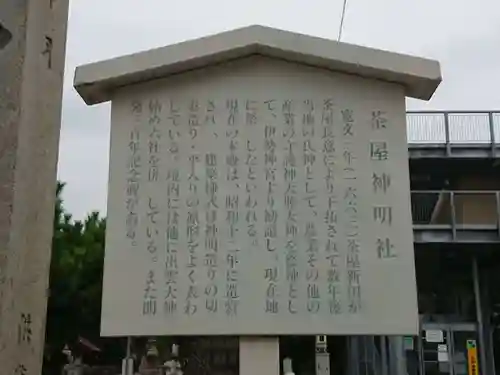 茶屋神明社
寛文三年(一六六三)茶屋新田が
茶屋長意により干拓されて数年後
当地の氏神として、農業その他の
産業の守護神天照大神を祭神とし
て、伊勢神宮より勧請し、現在地
に したといわれる。
現在の本殿は、昭和十二年に造宮
され 、建築様式は神明造りの切
妻造り・平入りの原形をよく表わ
している。境内には他に出雲大神
始め六社を併 している。また開
発三百年記念碑がある。